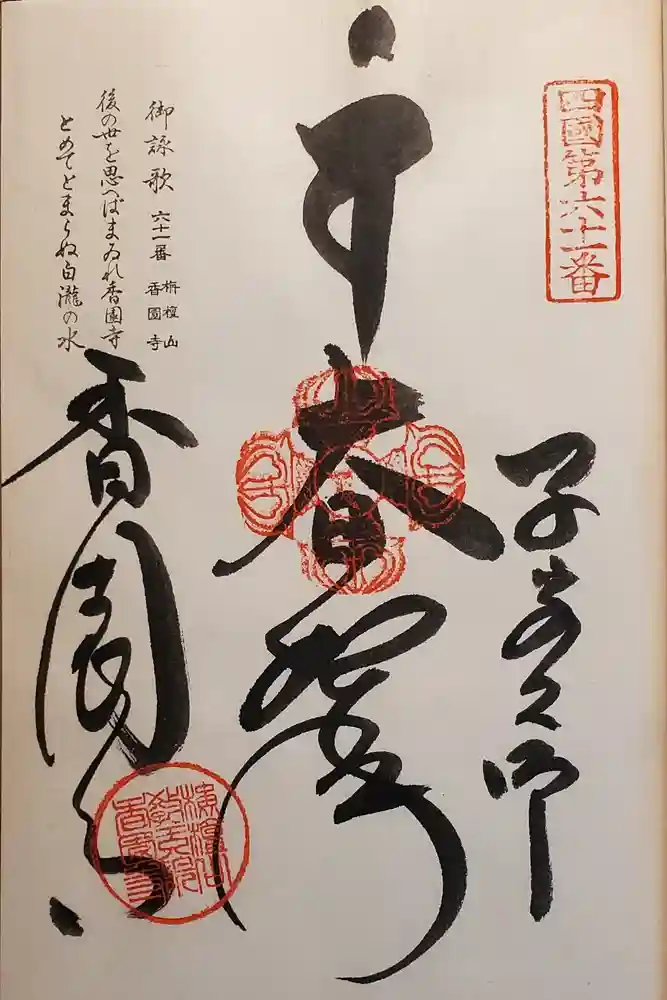 四國第六十一番
子安大師
大日
御詠歌 六十一番 栴檀山 香園寺
後の世を思へばまゐれ香園寺
とめてとまらぬ白瀧の水
香園寺